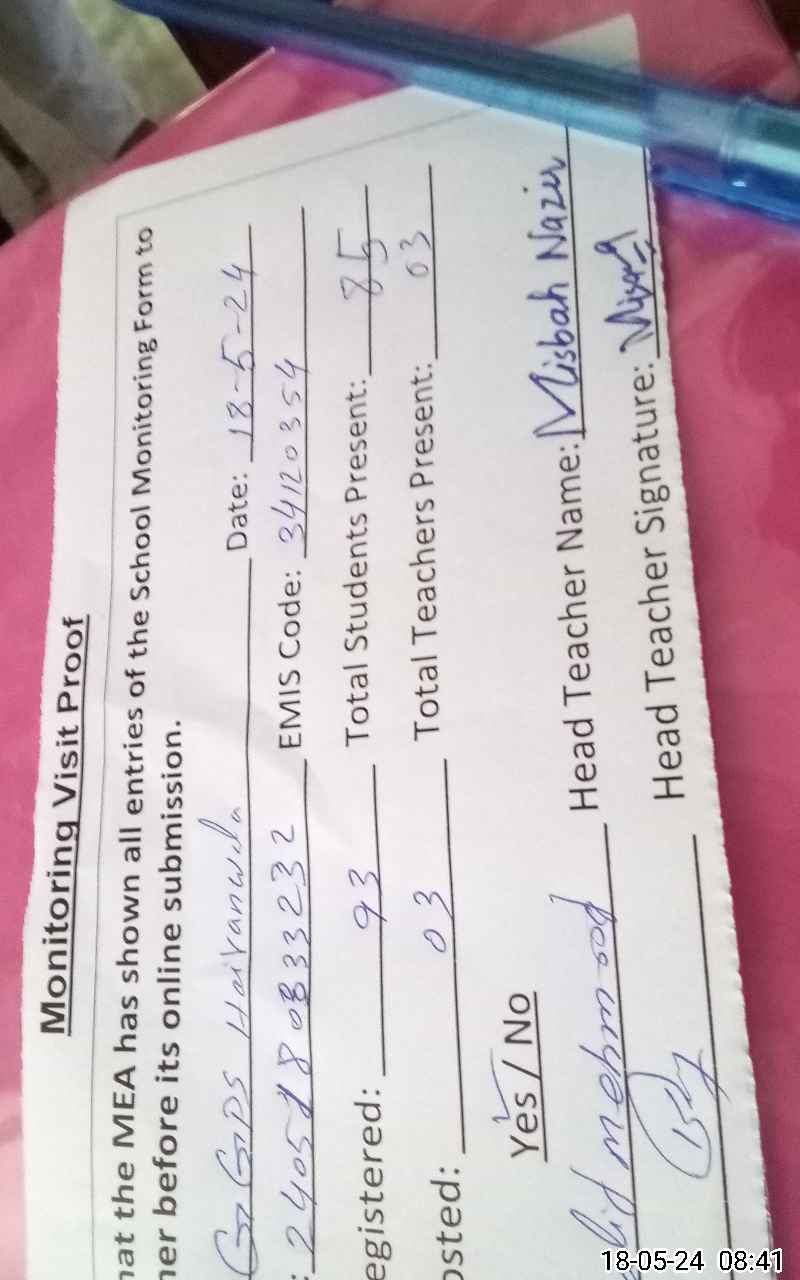 Monitoring Visit Proof
hat the MEA has shown all entries of the School Monitoring Form to
her before its online submission.
GGPS Hairanwala Date: 18-5-24
: EMIS Code: 34120354
egistered: 93 Total Students Present: 85
osted: 03 Total Teachers Present: 03
Yes / No
mehmood Head Teacher Name: Misbah Nazir
Head Teacher Signature:
18-05-24 08:41